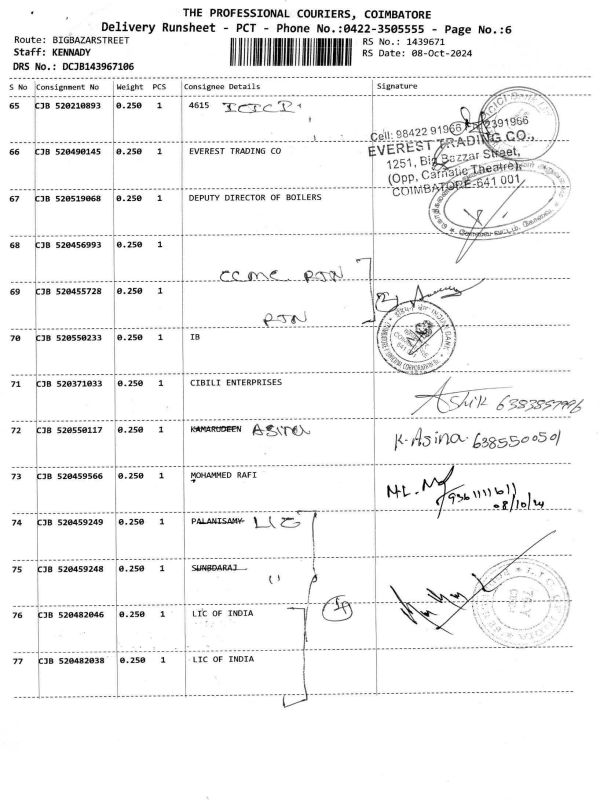 THE PROFESSIONAL COURIERS, COIMBATORE
Delivery Runsheet - PCT - Phone No.:0422-3505555 - Page No.:6
Route: BIGBAZARSTREET RS No.: 1439671
Staff: KENNADY RS Date: 08-Oct-2024
DRS No.: DCJB143967106
S No Consignment No Weight PCS Consignee Details Signature
65 CJB 520210893 0.250 1 4615 ICICI
Cell: 98422 91966 2391966
EVEREST TRADING CO.,
66 CJB 520490145 0.250 1 EVEREST TRADING CO
1251, Big Bazzar Street,
(Opp, Carnatic Theatre),
COIMBATORE-641 001
67 CJB 520519068 0.250 1 DEPUTY DIRECTOR OF BOILERS
68 CJB 520456993 0.250 1
CCMC PJN
69 CJB 520455728 0.250 1
PJN
70 CJB 520550233 0.250 1 IB
INDIAN BANK
71 CJB 520371033 0.250 1 CIBILI ENTERPRISES
Ashik
72 CJB 520550117 0.250 1 KAMARUDEEN ASINA
K. Asina 6385500501
73 CJB 520459566 0.250 1 MOHAMMED RAFI
9361111611
08/10/24
74 CJB 520459249 0.250 1 PALANISAMY LIC
75 CJB 520459248 0.250 1 SUNBDARAJ "
76 CJB 520482046 0.250 1 LIC OF INDIA
77 CJB 520482038 0.250 1 LIC OF INDIA